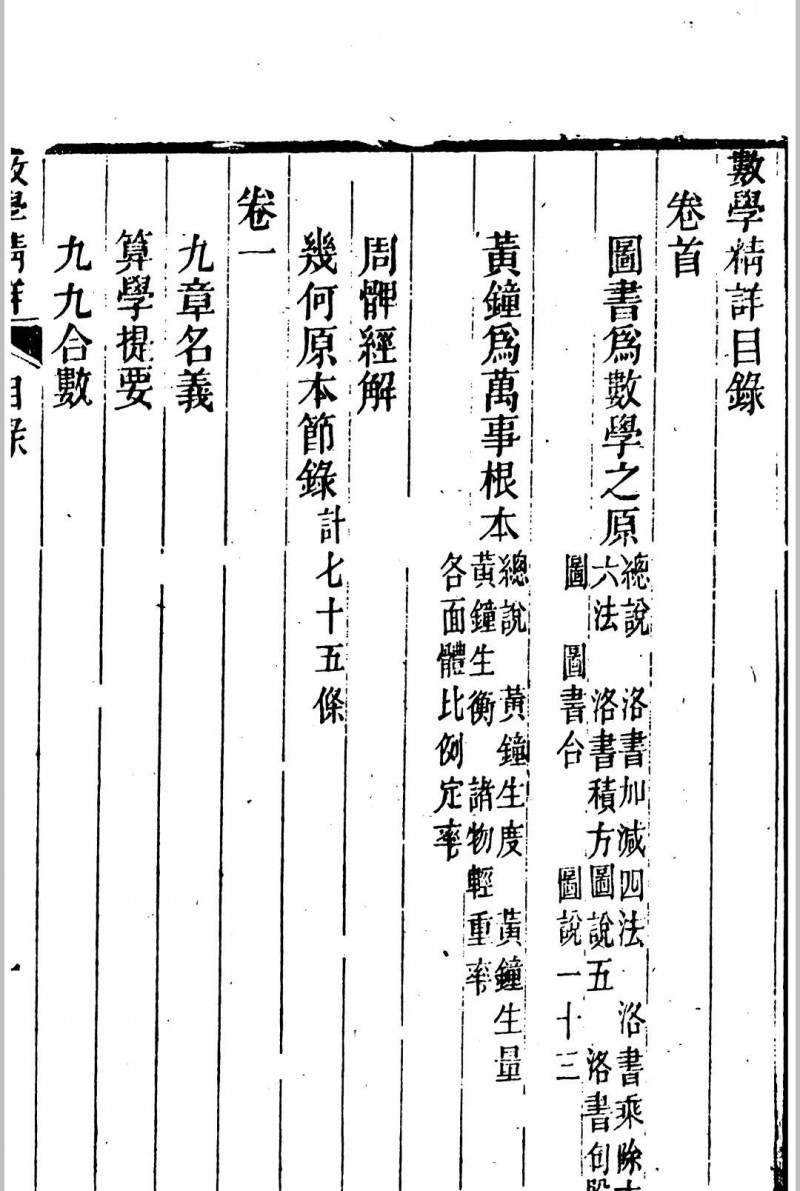 數學精詳目錄
卷首
圖書爲數學之原
總說 洛書加减四法 洛書乘除
六法 洛書積方圖說五 洛書勾股
圖 圖書合 圖說一十三
黃鐘爲萬事根本
總說 黃鐘生度 黃鐘生量
黃鐘生衡 諸物輕重率
各面體比例定率
周髀經解
幾何原本節錄計七十五條
卷一
九章名義
算學提要
九九合數
數學精詳 目錄